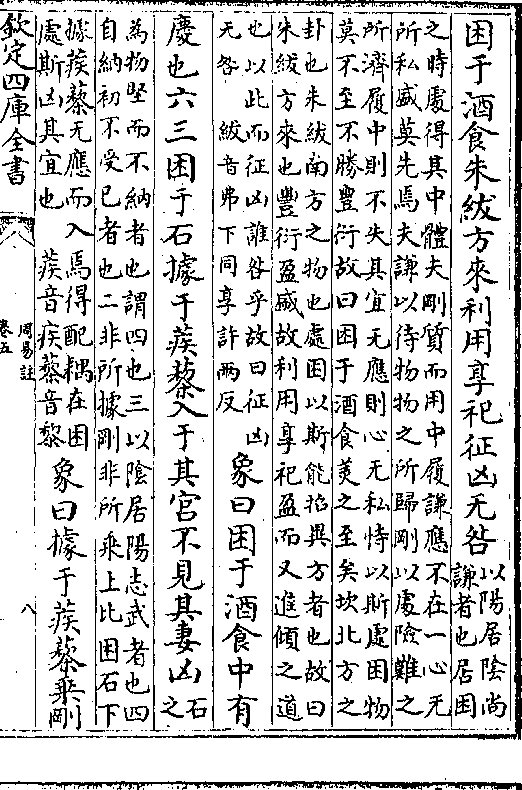 困于酒食朱紱方來利用享祀征凶无咎
以陽居陰尚
謙者也居困
之時處得其中體夫剛質而用中履謙應不在一心无
所私盛莫先焉夫謙以待物物之所歸剛以處險難之
所濟履中則不失其宜无應則心无私恃以斯處困物
莫不至不勝豐衍故曰困于酒食美之至矣坎北方之
卦也朱紱南方之物也處困以斯能招異方者也故曰
朱紱方來也豐衍盈盛故利用享祀盈而又進傾之道
也以此而征凶誰咎乎故曰征凶
无咎 紱音弗下同享許兩反
象曰困于酒食中有
慶也六三困于石據于蒺藜入于其宮不見其妻凶
石
之
為物堅而不納者也謂四也三以陰居陽志武者也四
自納初不受已者也二非所據剛非所乘上比困石下
據蒺藜无應而入焉得配耦在困
處斯凶其宜也 蒺音疾藜音黎
象曰據于蒺藜乘剛
欽定四庫全書
周易註
卷五
八